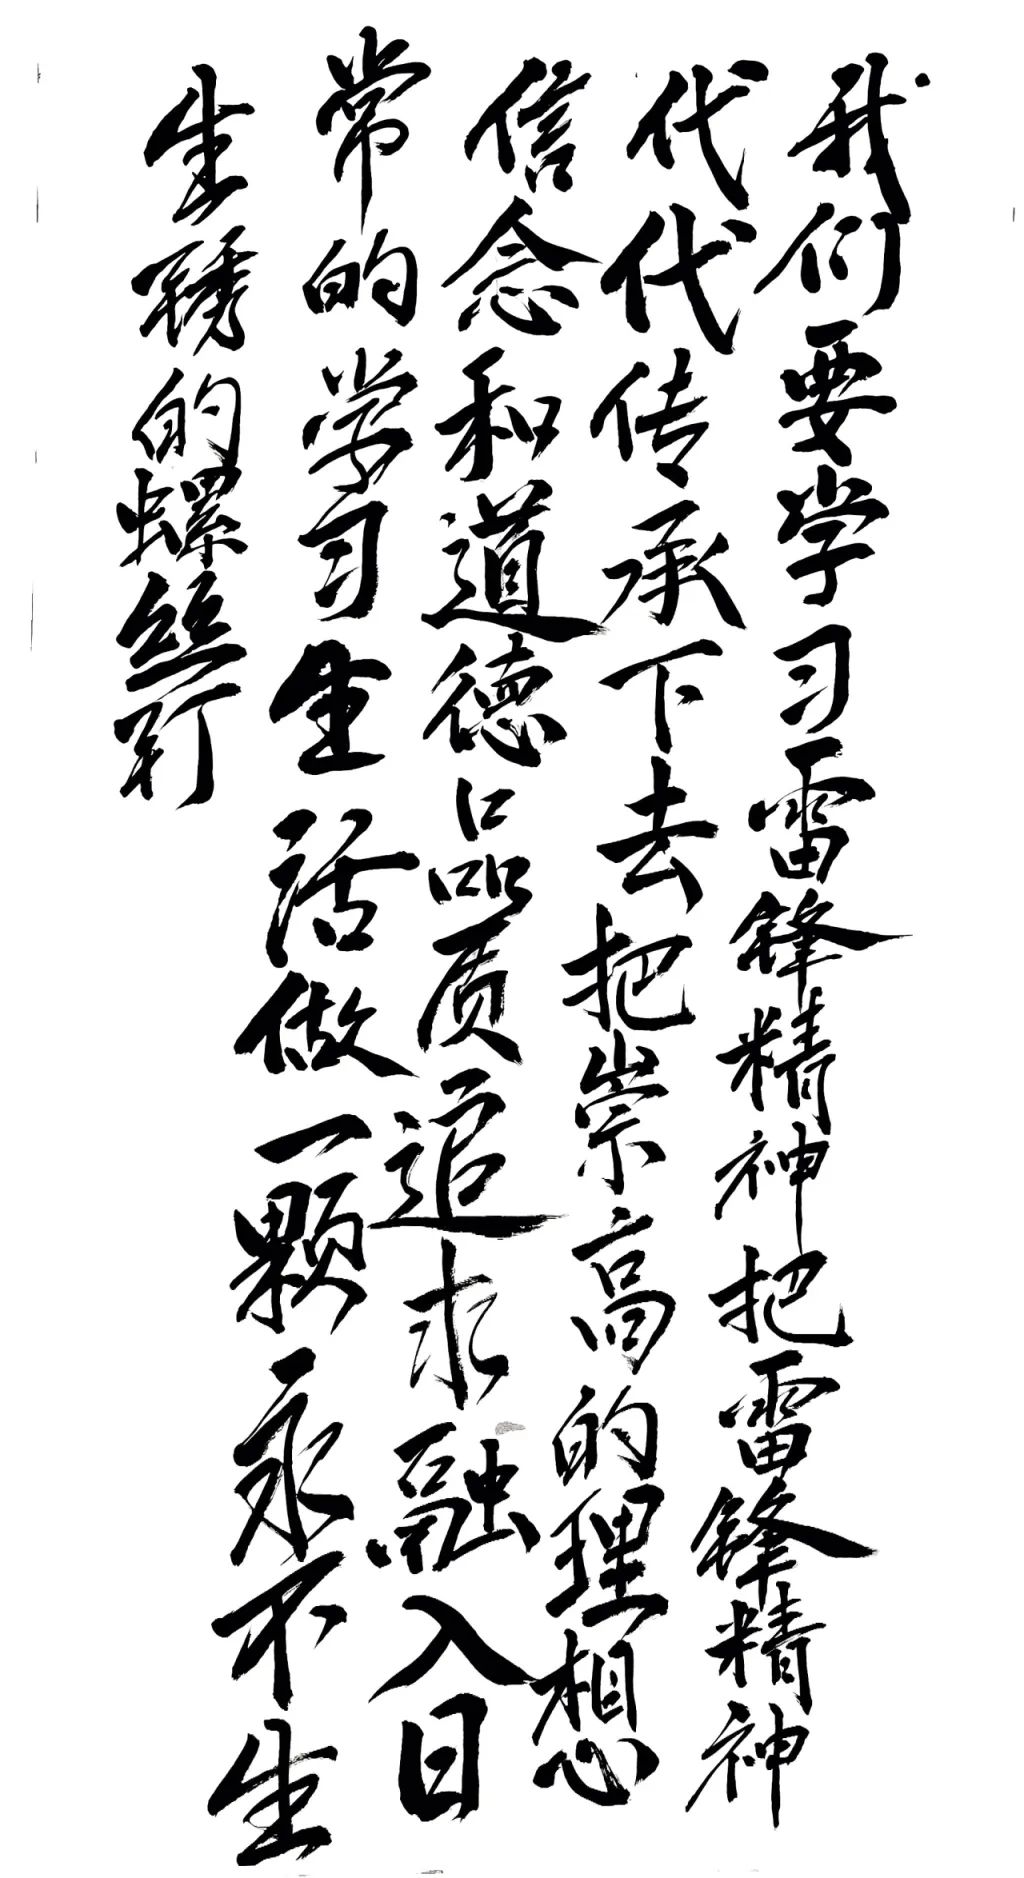 我们要学习雷锋精神把雷锋精神
代代传承下去把崇高的理想
信念和道德品质追求融入日
常的学习生活做一颗永不生
生锈的螺丝钉